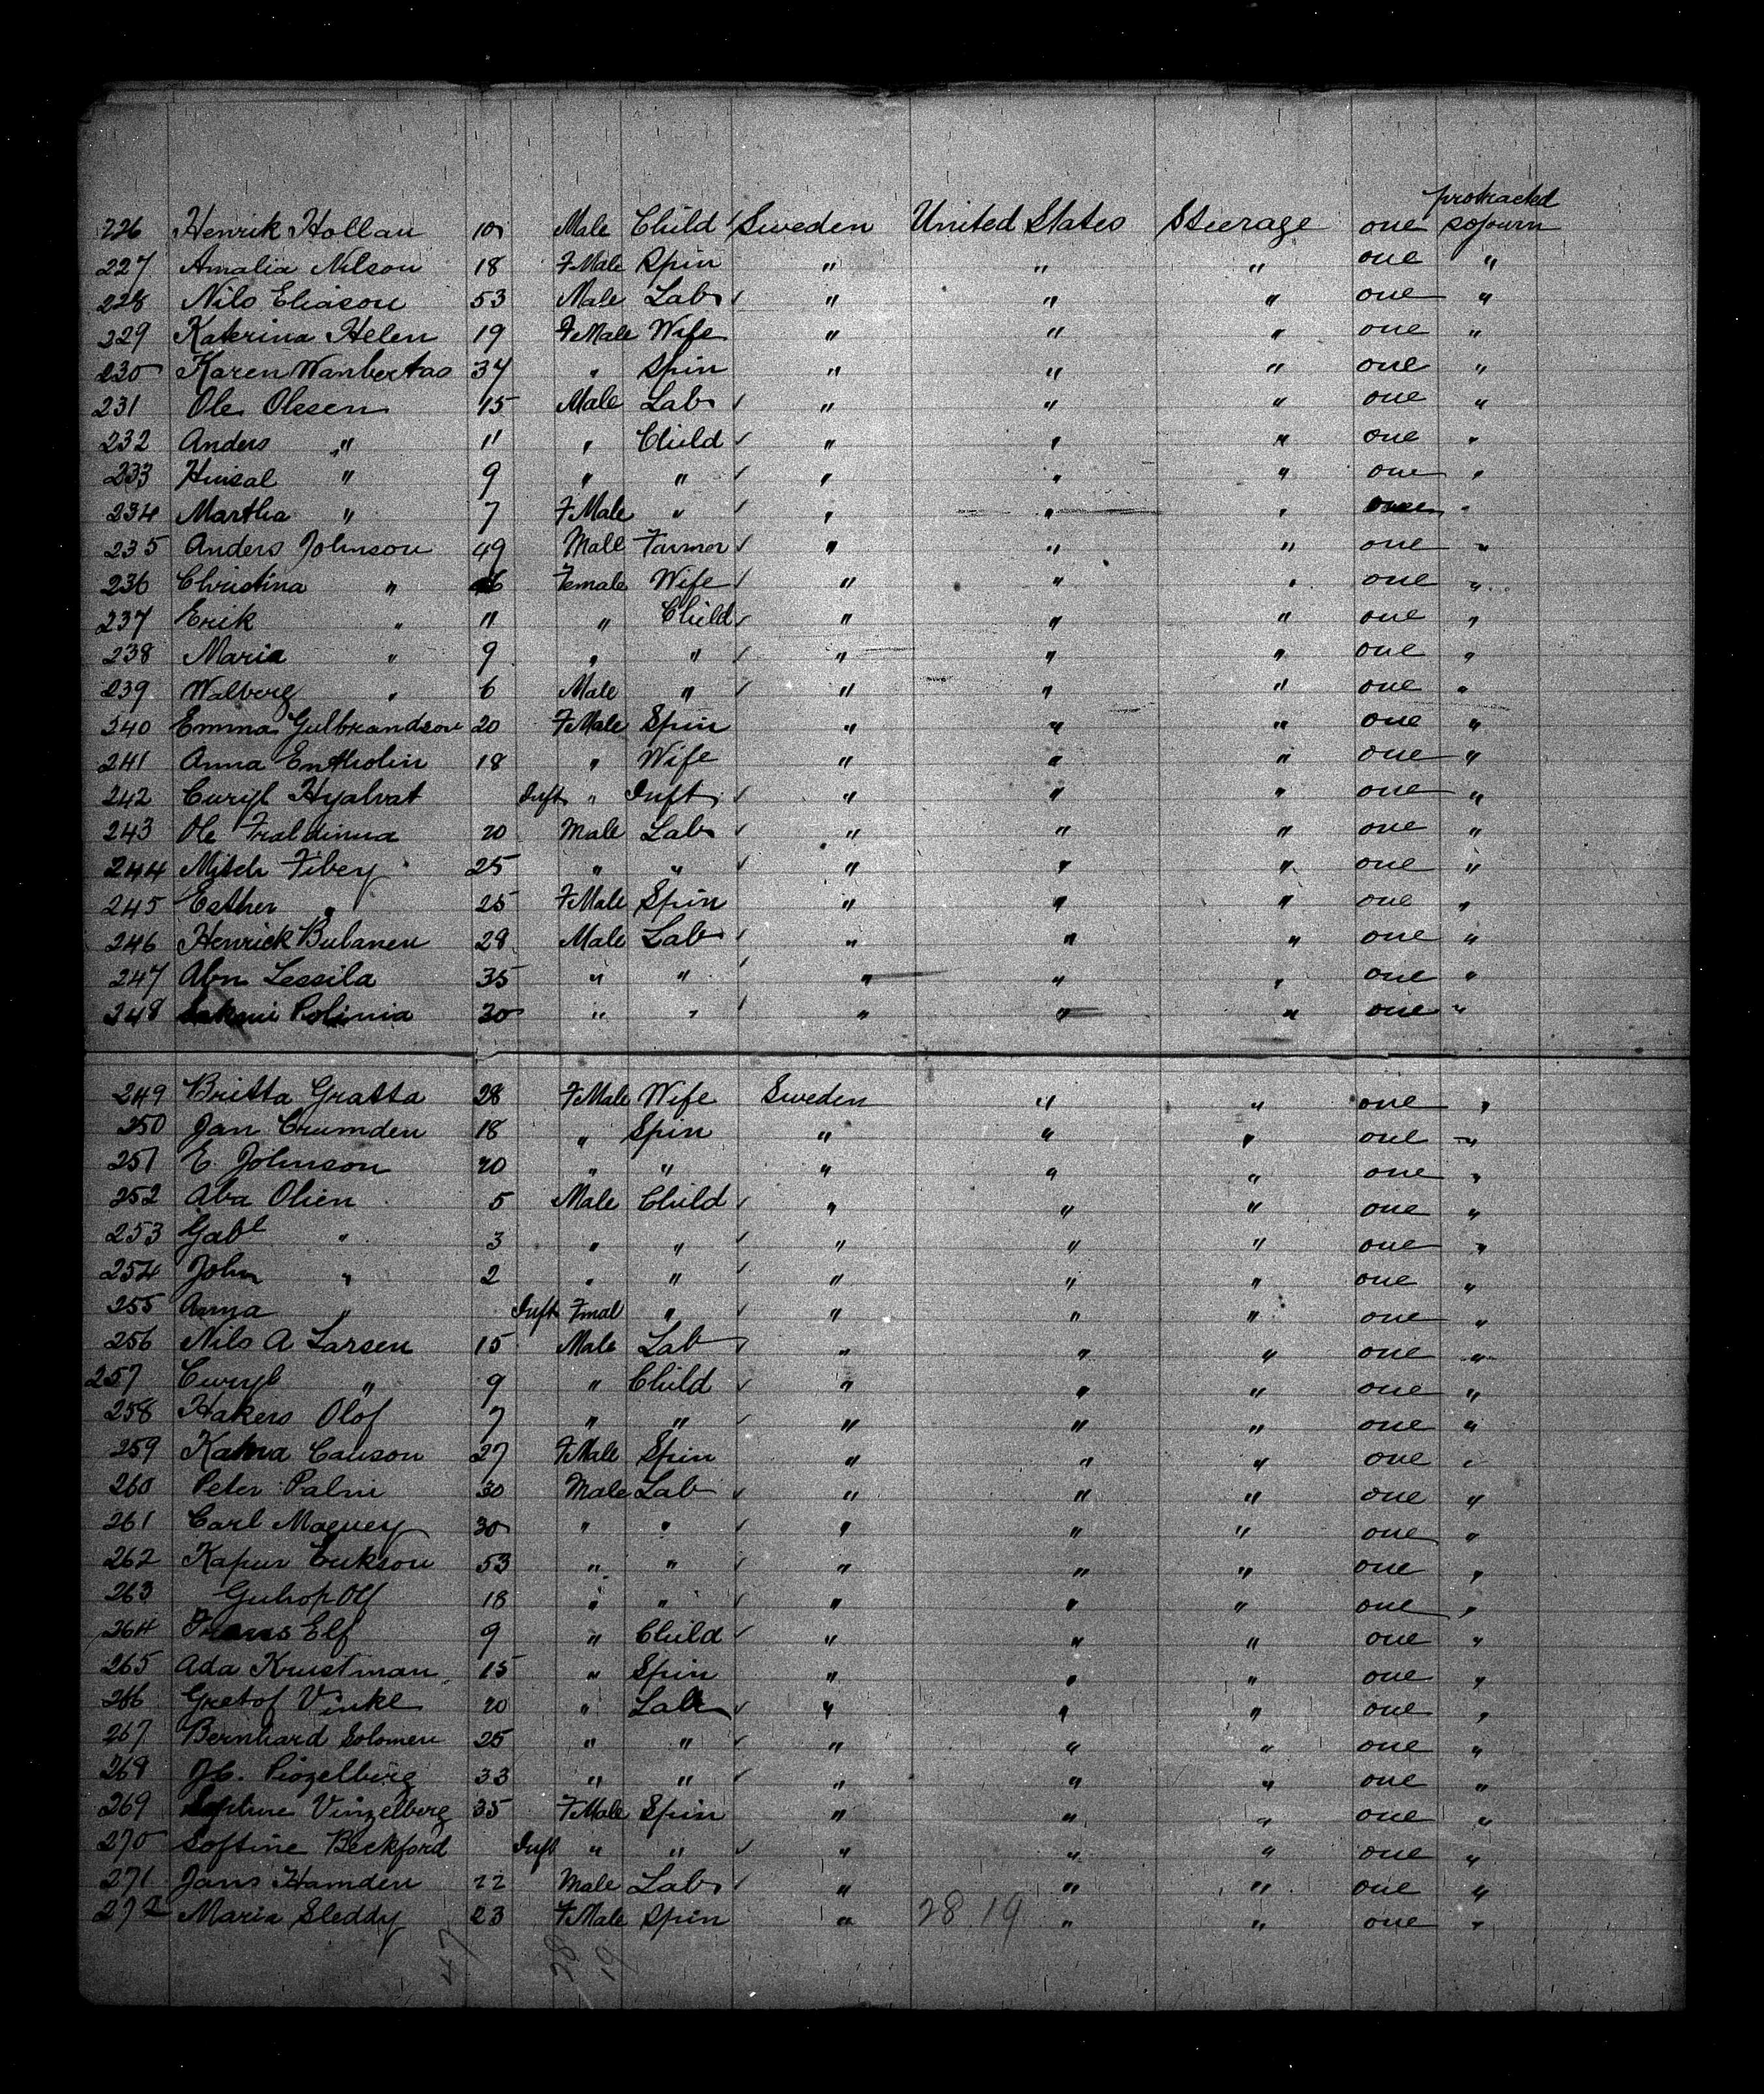 protracted
226 Henrik Hollau 10 Male Child Sweden United States Steerage one sojourn
227 Amalia Nilson 18 FMale Spin " " " one "
228 Nils Eliason 53 Male Lab " " " one "
229 Katerina Helen 19 FMale Wife " " " one "
230 Karen Wanbertas 34 " Spin " " " one "
231 Ole Olesen 15 Male Lab " " " one "
232 Anders " 11 " Child " " " one "
233 " 9 " " " " " one "
234 Martha " 7 FMale " " " " one "
235 Anders Johnson 49 Male Farmer " " " one "
236 Christina " Female Wife " " " one "
237 Erik " 11 " Child " " " one "
238 Maria " 9 " " " " " one "
239 Walberg " 6 Male " " " " one "
240 Emma Gulbrandson 20 FMale Spin " " " one "
241 Anna Entholin 18 " Wife " " " one "
242 Curyl Hyalvat Inft " Inft " " " one "
243 Ole 20 Male Lab " " " one "
244 Mitch Fibey 25 " " " " " one "
245 Esther " 25 FMale Spin " " " one "
246 Henrick Bubanen 28 Male Lab " " " one "
247 Abn Lessila 35 " " " " " one "
248 Polinia 30 " " " " " one "
249 Britta Gratta 28 FMale Wife Sweden " " one "
250 Jan Crumden 18 " Spin " " " one "
251 E. Johnson 20 " " " " " one "
252 Aba Olien 5 Male Child " " " one "
253 Gabl " 3 " " " " " one "
254 John " 2 " " " " " one "
255 Anna " Inft Fmal " " " " one "
256 Nils A Larsen 15 Male Lab " " " one "
257 Curyl " 9 " Child " " " one "
258 Hakers Olof 7 " " " " " one "
259 Katva Causon 27 FMale Spin " " " one "
260 Peter Palm 30 Male Lab " " " one "
261 Carl Maeuey 30 " " " " " one "
262 Kapur Erikson 53 " " " " " one "
263 Guhop Olf 18 " " " " " one "
264 Frans Elf 9 " Child " " " one "
265 Ada Krustman 15 " Spin " " " one "
266 Gretof Vinke 20 " Lab " " " one "
267 Bernhard Solomen 25 " " " " " one "
268 Piozelberg 33 " " " " " one "
269 Vinzelberg 35 FMale Spin " " " one "
270 Softine Beckford Inft " " " " " one "
271 Jans Hamden 22 Male Lab " " " one "
272 Maria Sleddy 23 FMale Spin " 28 19 " " one "
47 28 19